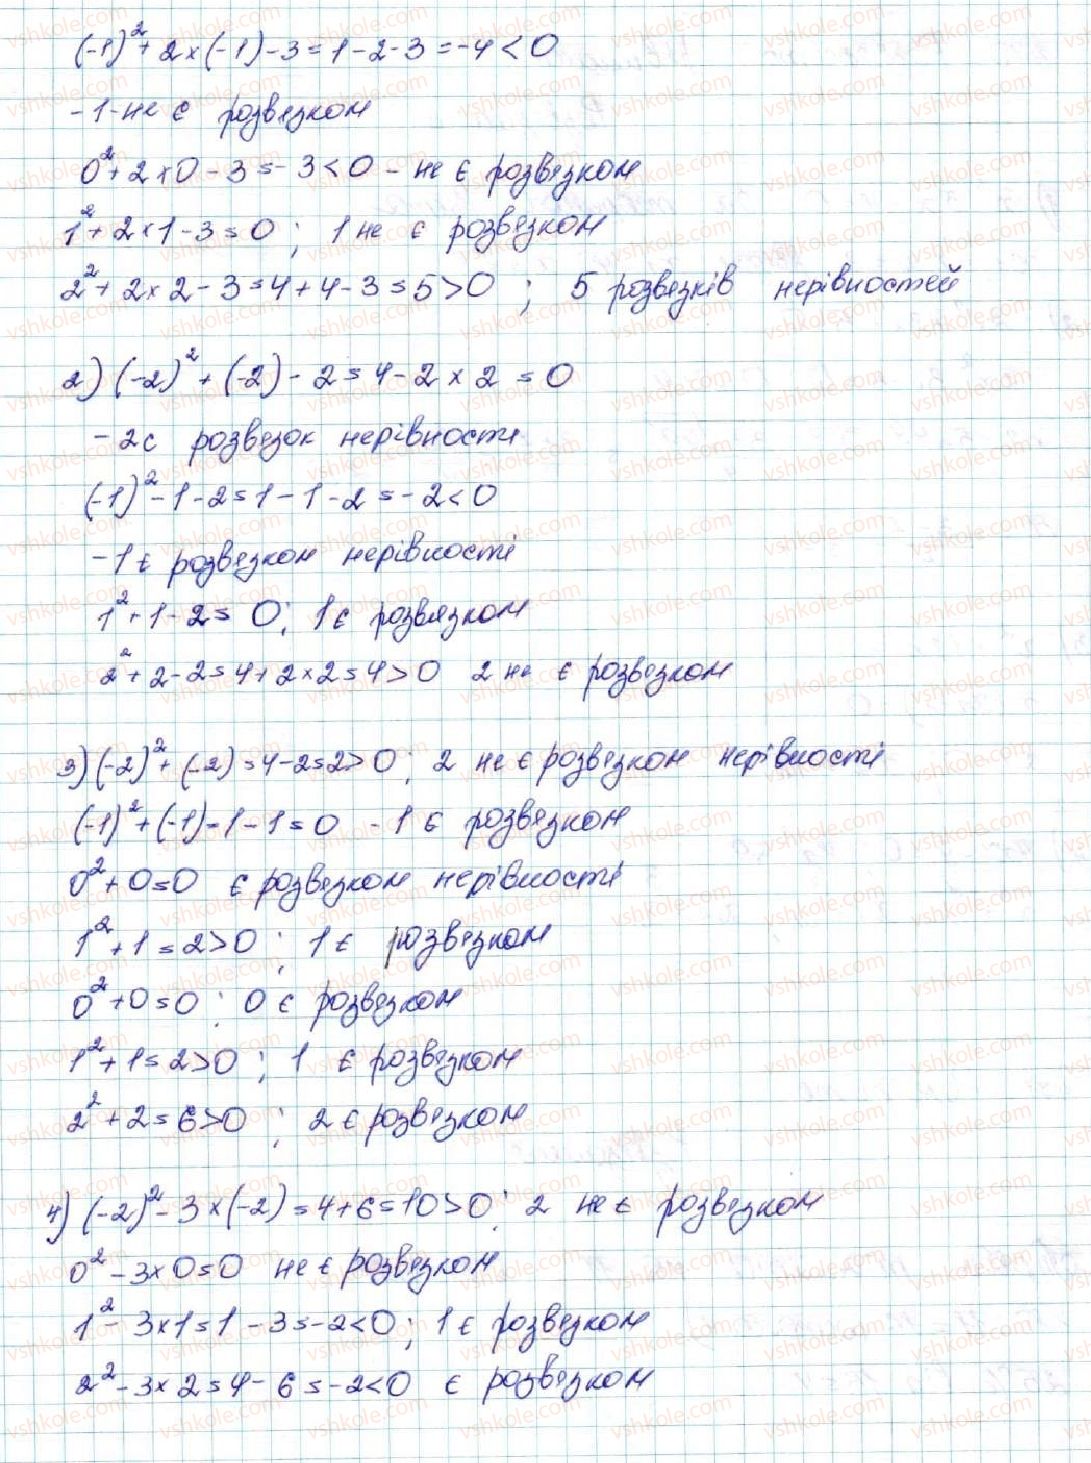 (-1)²+2×(-1)-3=1-2-3=-4<0
-1-не є розвезком
0²+2×0-3=-3<0 - не є розвезком
1²+2×1-3=0; 1 не є розвезком
2²+2×2-3=4+4-3=5>0; 5 розвезків нерівностей
2) (-2)²+(-2)-2=4-2×2=0
-2є розвезок нерівности
(-1)²-1-2=1-1-2=-2<0
-1є розвезком нерівності
1²+1-2=0; 1є розвязком
2²+2-2=4+2×2=4>0 2 не є розвезком
3) (-2)²+(-2)=4-2=2>0; 2 не є розвезком нерівності
(-1)²+(-1)=1-1=0 -1 є розвезком
0²+0=0 є розвезком нерівності
1²+1=2>0; 1 є розвезком
0²+0=0; 0 є розвезком
1²+1=2>0; 1 є розвезком
2²+2=6>0; 2 є розвезком
4) (-2)²-3×(-2)=4+6=10>0; 2 не є розвезком
0²-3×0=0 не є розвезком
1²-3×1=1-3=-2<0; 1 є розвезком
2²-3×2=4-6=-2<0 є розвезком